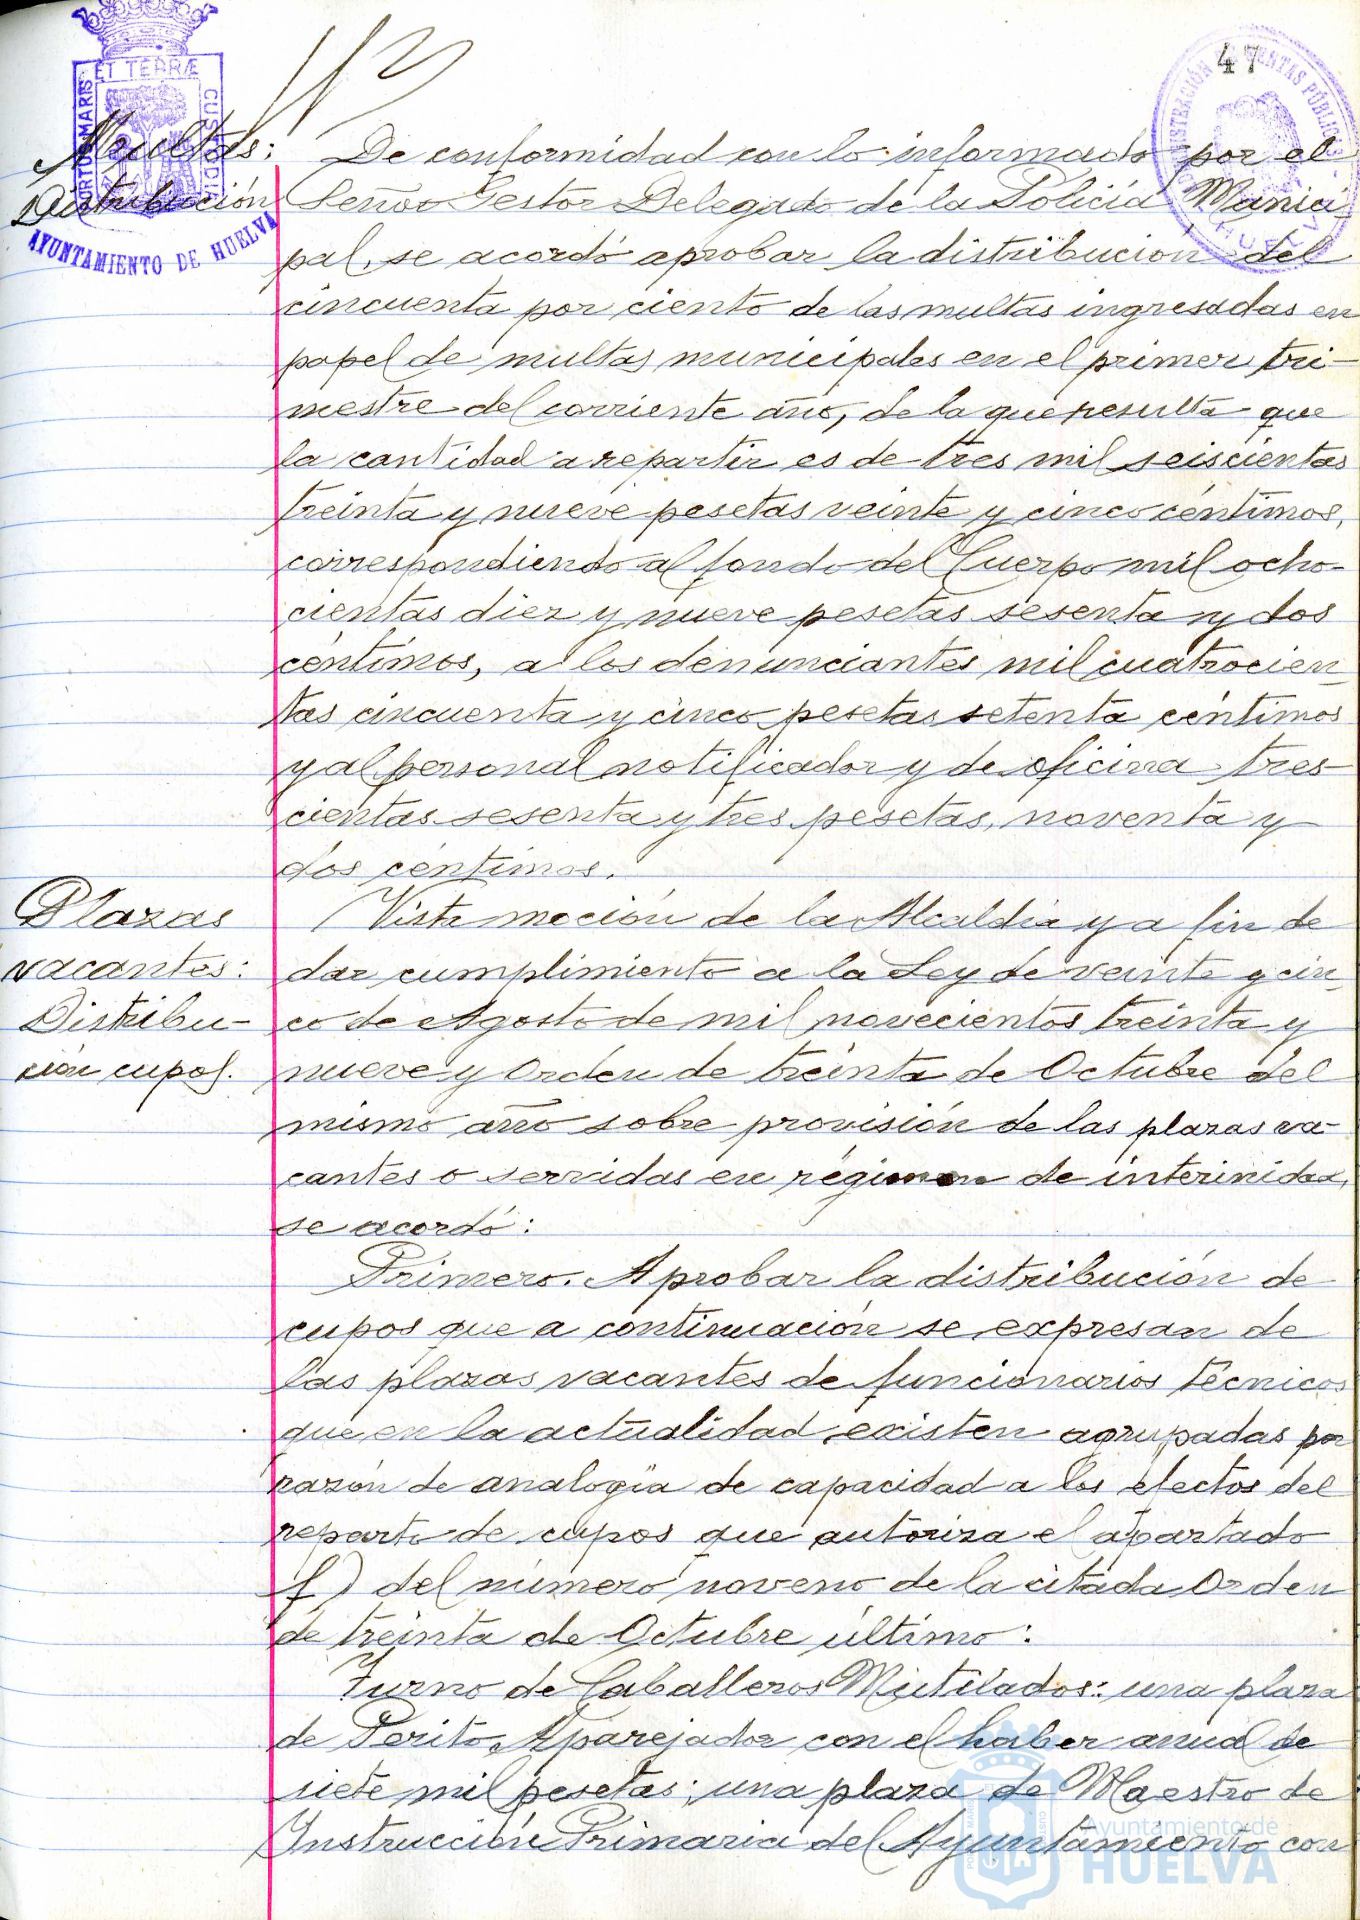 47
PORTUS MARIS ET TERRÆ CUSTODIA
AYUNTAMIENTO DE HUELVA
HUELVA
Multas:
Distribución
De conformidad con lo informado por el
Señor Gestor Delegado de la Policía Munici-
pal, se acordó aprobar la distribución del
cincuenta por ciento de las multas ingresadas en
papel de multas municipales en el primer tri-
mestre del corriente año, de la que resulta que
la cantidad a repartir es de tres mil seiscientas
treinta y nueve pesetas veinte y cinco céntimos,
correspondiendo al fondo del Cuerpo mil ocho-
cientas diez y nueve pesetas sesenta y dos
céntimos, a los denunciantes mil cuatrocien-
tas cincuenta y cinco pesetas setenta céntimos
y al personal notificador y de oficina tres-
cientas sesenta y tres pesetas, noventa y
dos céntimos.
Plazas
vacantes:
Distribu-
ción cupos.
Vista moción de la Alcaldía y a fin de
dar cumplimiento a la Ley de veinte y cin-
co de Agosto de mil novecientos treinta y
nueve y Orden de treinta de Octubre del
mismo año sobre provisión de las plazas va-
cantes o servidas en régimen de interinidad,
se acordó:
Primero. Aprobar la distribución de
cupos que a continuación se expresan de
las plazas vacantes de funcionarios técnicos
que en la actualidad existen agrupadas por
razón de analogía de capacidad a los efectos del
reparto de cupos que autoriza el apartado
f) del número noveno de la citada Orden
de treinta de Octubre último:
Turno de Caballeros Mutilados: una plaza
de Perito Aparejador con el haber anual de
siete mil pesetas; una plaza de Maestro de
Instrucción Primaria del Ayuntamiento con
Ayuntamiento de
HUELVA